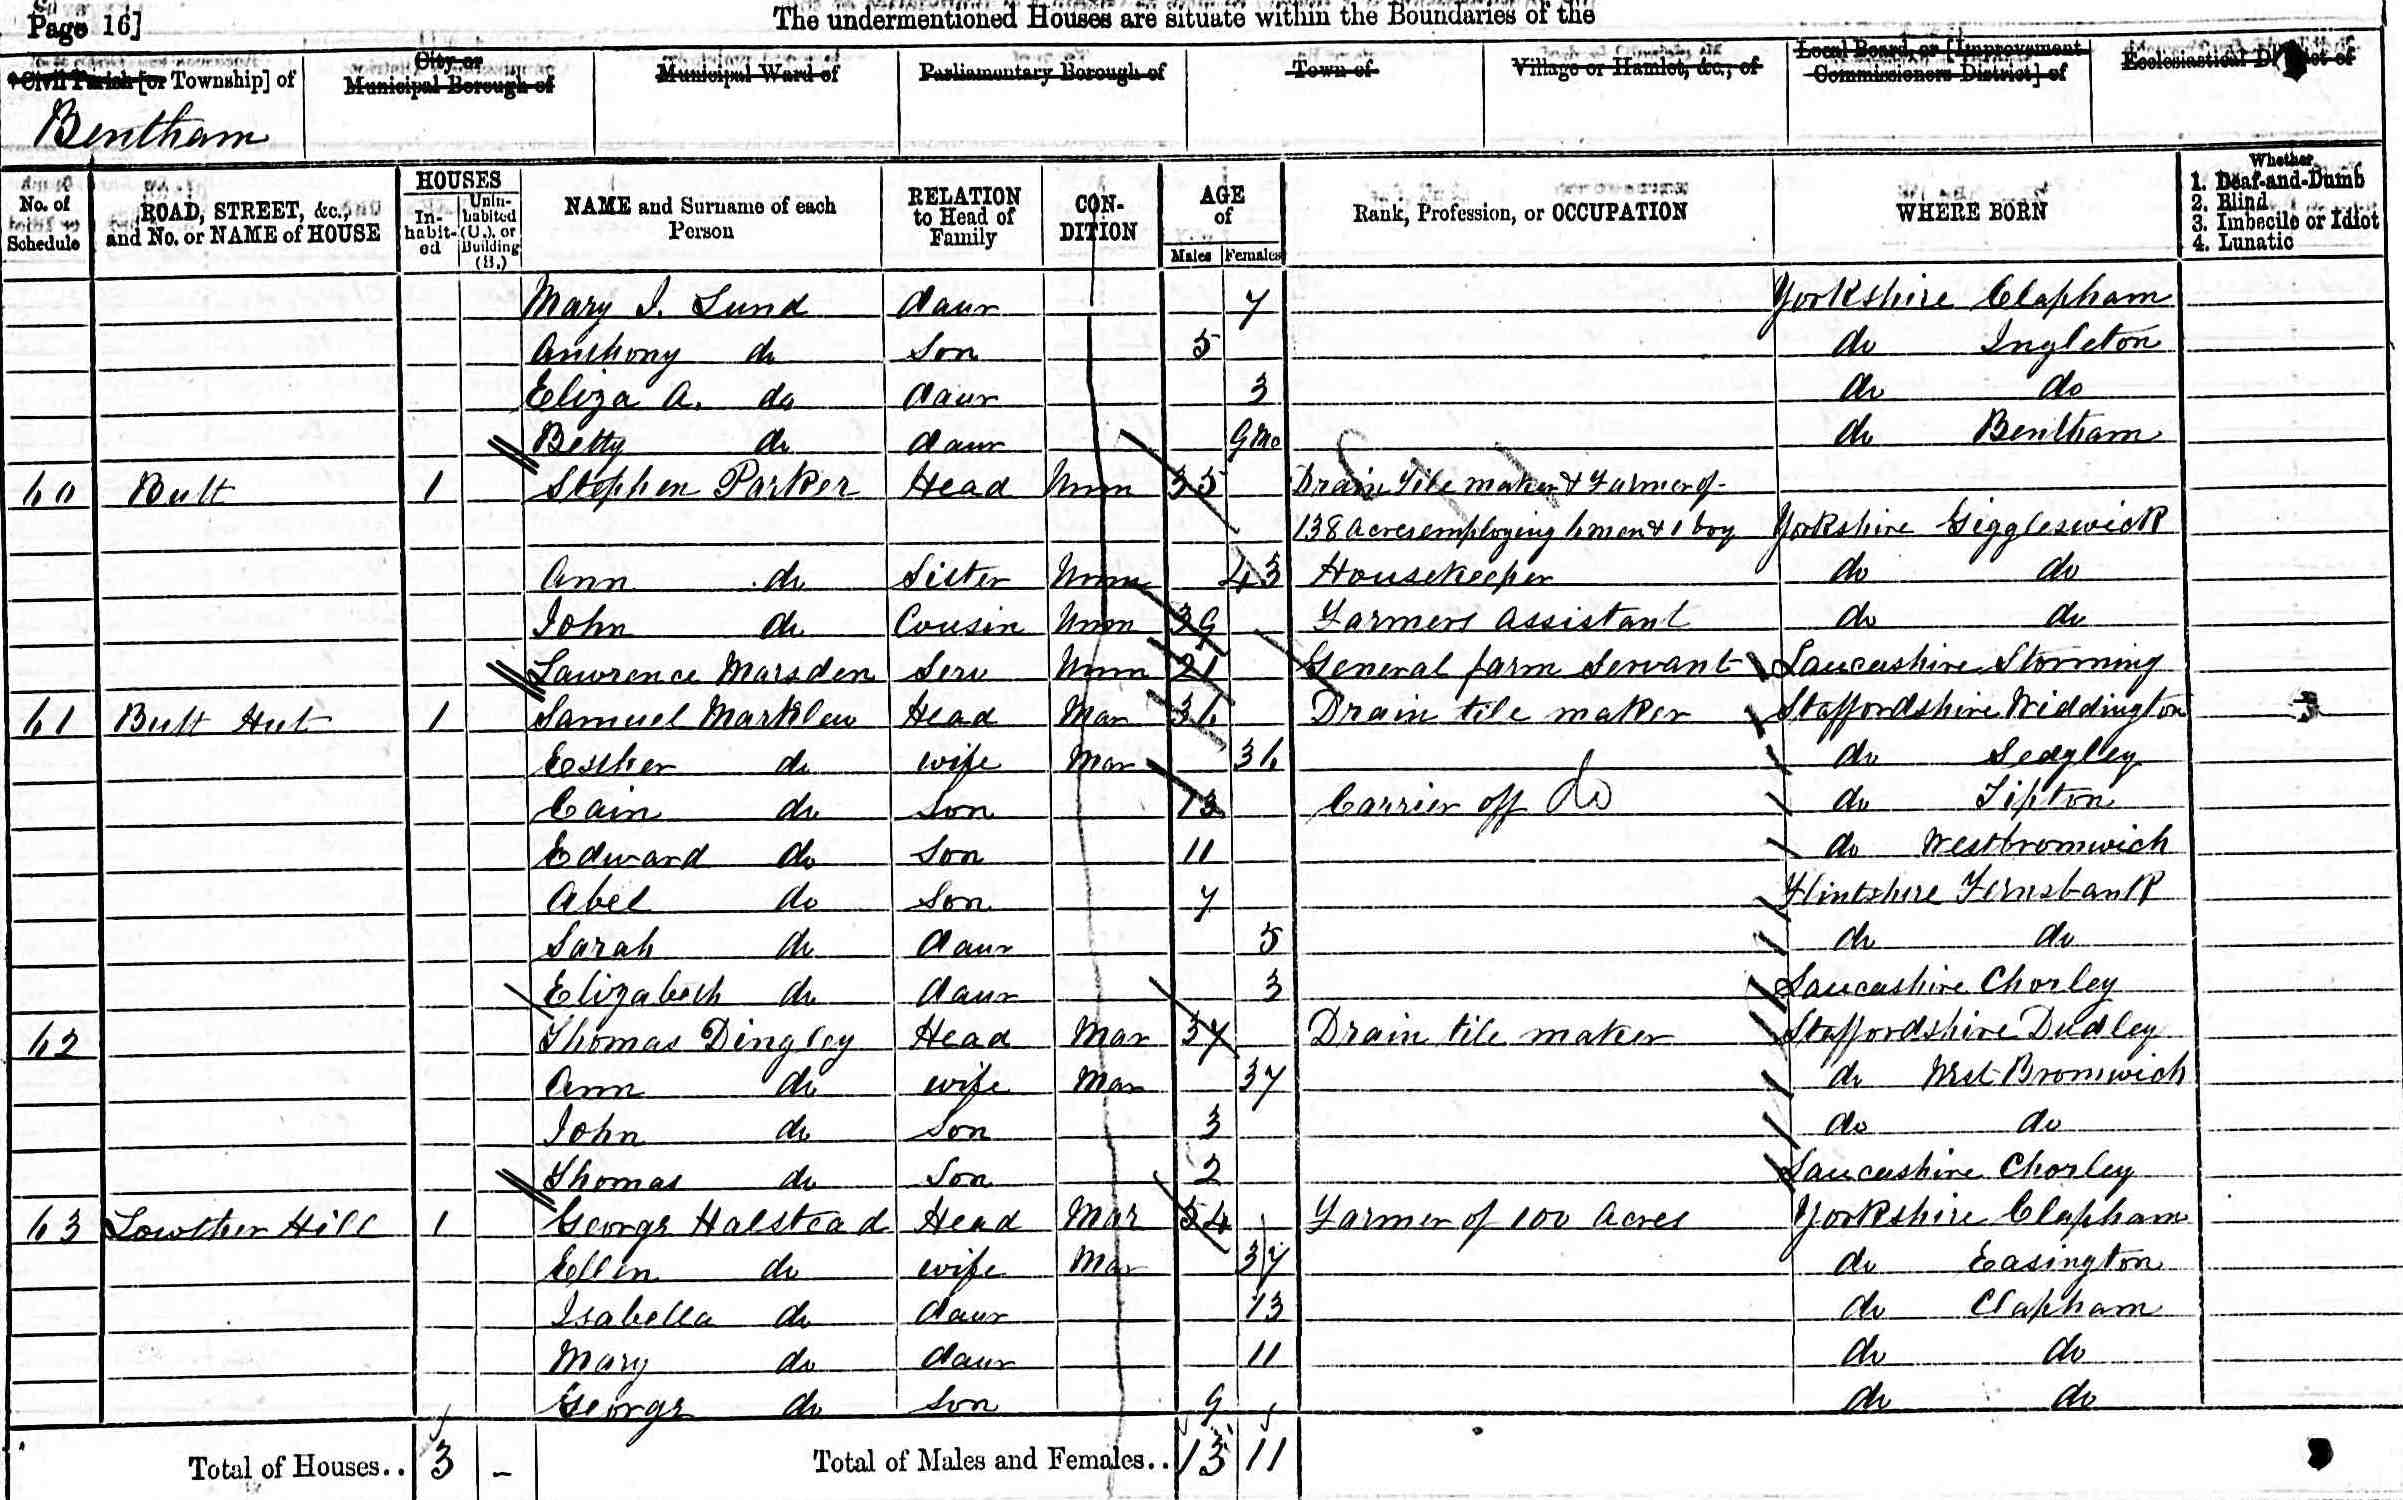 Page 16]
The undermentioned Houses are situate within the Boundaries of the
Civil Parish [or Township] of
City or Municipal Borough of
Municipal Ward of
Parliamentary Borough of
Town of
Village or Hamlet, &c., of
Local Board, or [Improvement Commissioners District] of
Ecclesiastical District of
Bentham
No. of Schedule
ROAD, STREET, &c., and No. or NAME of HOUSE
HOUSES
In-habit-ed
Unin-habited (U.), or Building (B.)
NAME and Surname of each Person
RELATION to Head of Family
CON-DITION
AGE of
Males Females
Rank, Profession, or OCCUPATION
WHERE BORN
Whether
1. Deaf-and-Dumb
2. Blind
3. Imbecile or Idiot
4. Lunatic
Mary I. Lund daur 7 Yorkshire Clapham
Anthony do Son 5 do Ingleton
Eliza A. do daur 3 do do
Betty do daur 9mo do Bentham
60 Butt 1 Stephen Parker Head Unm 35 Drain Tile maker & Farmer of
138 acres employing 6 men & 1 boy Yorkshire Giggleswick
Ann do Sister Unm 43 Housekeeper do do
John do Cousin Unm 39 Farmers Assistant do do
Lawrence Marsden Serv Unm 21 General farm Servant Lancashire
61 Butt Hut 1 Samuel Marklew Head Mar 36 Drain tile maker Staffordshire Widdington 3
Esther do wife Mar 36 do Sedgley
Cain do Son 13 Carrier off do do Tipton
Edward do Son 11 do Westbromwich
Abel do Son 7 Flintshire Fernsbank
Sarah do daur 5 do do
Elizabeth do daur 3 Lancashire Chorley
62 Thomas Dingley Head Mar 37 Drain tile maker Staffordshire Dudley
Ann do wife Mar 37 do West Bromwich
John do Son 3 do do
Thomas do Son 2 Lancashire Chorley
63 Lowther Hill 1 George Halstead Head Mar 54 Farmer of 100 Acres Yorkshire Clapham
Ellen do wife Mar 37 do Easington
Isabella do daur 13 do Clapham
Mary do daur 11 do do
George do Son 9 do do
Total of Houses.. 3 – Total of Males and Females.. 13 11